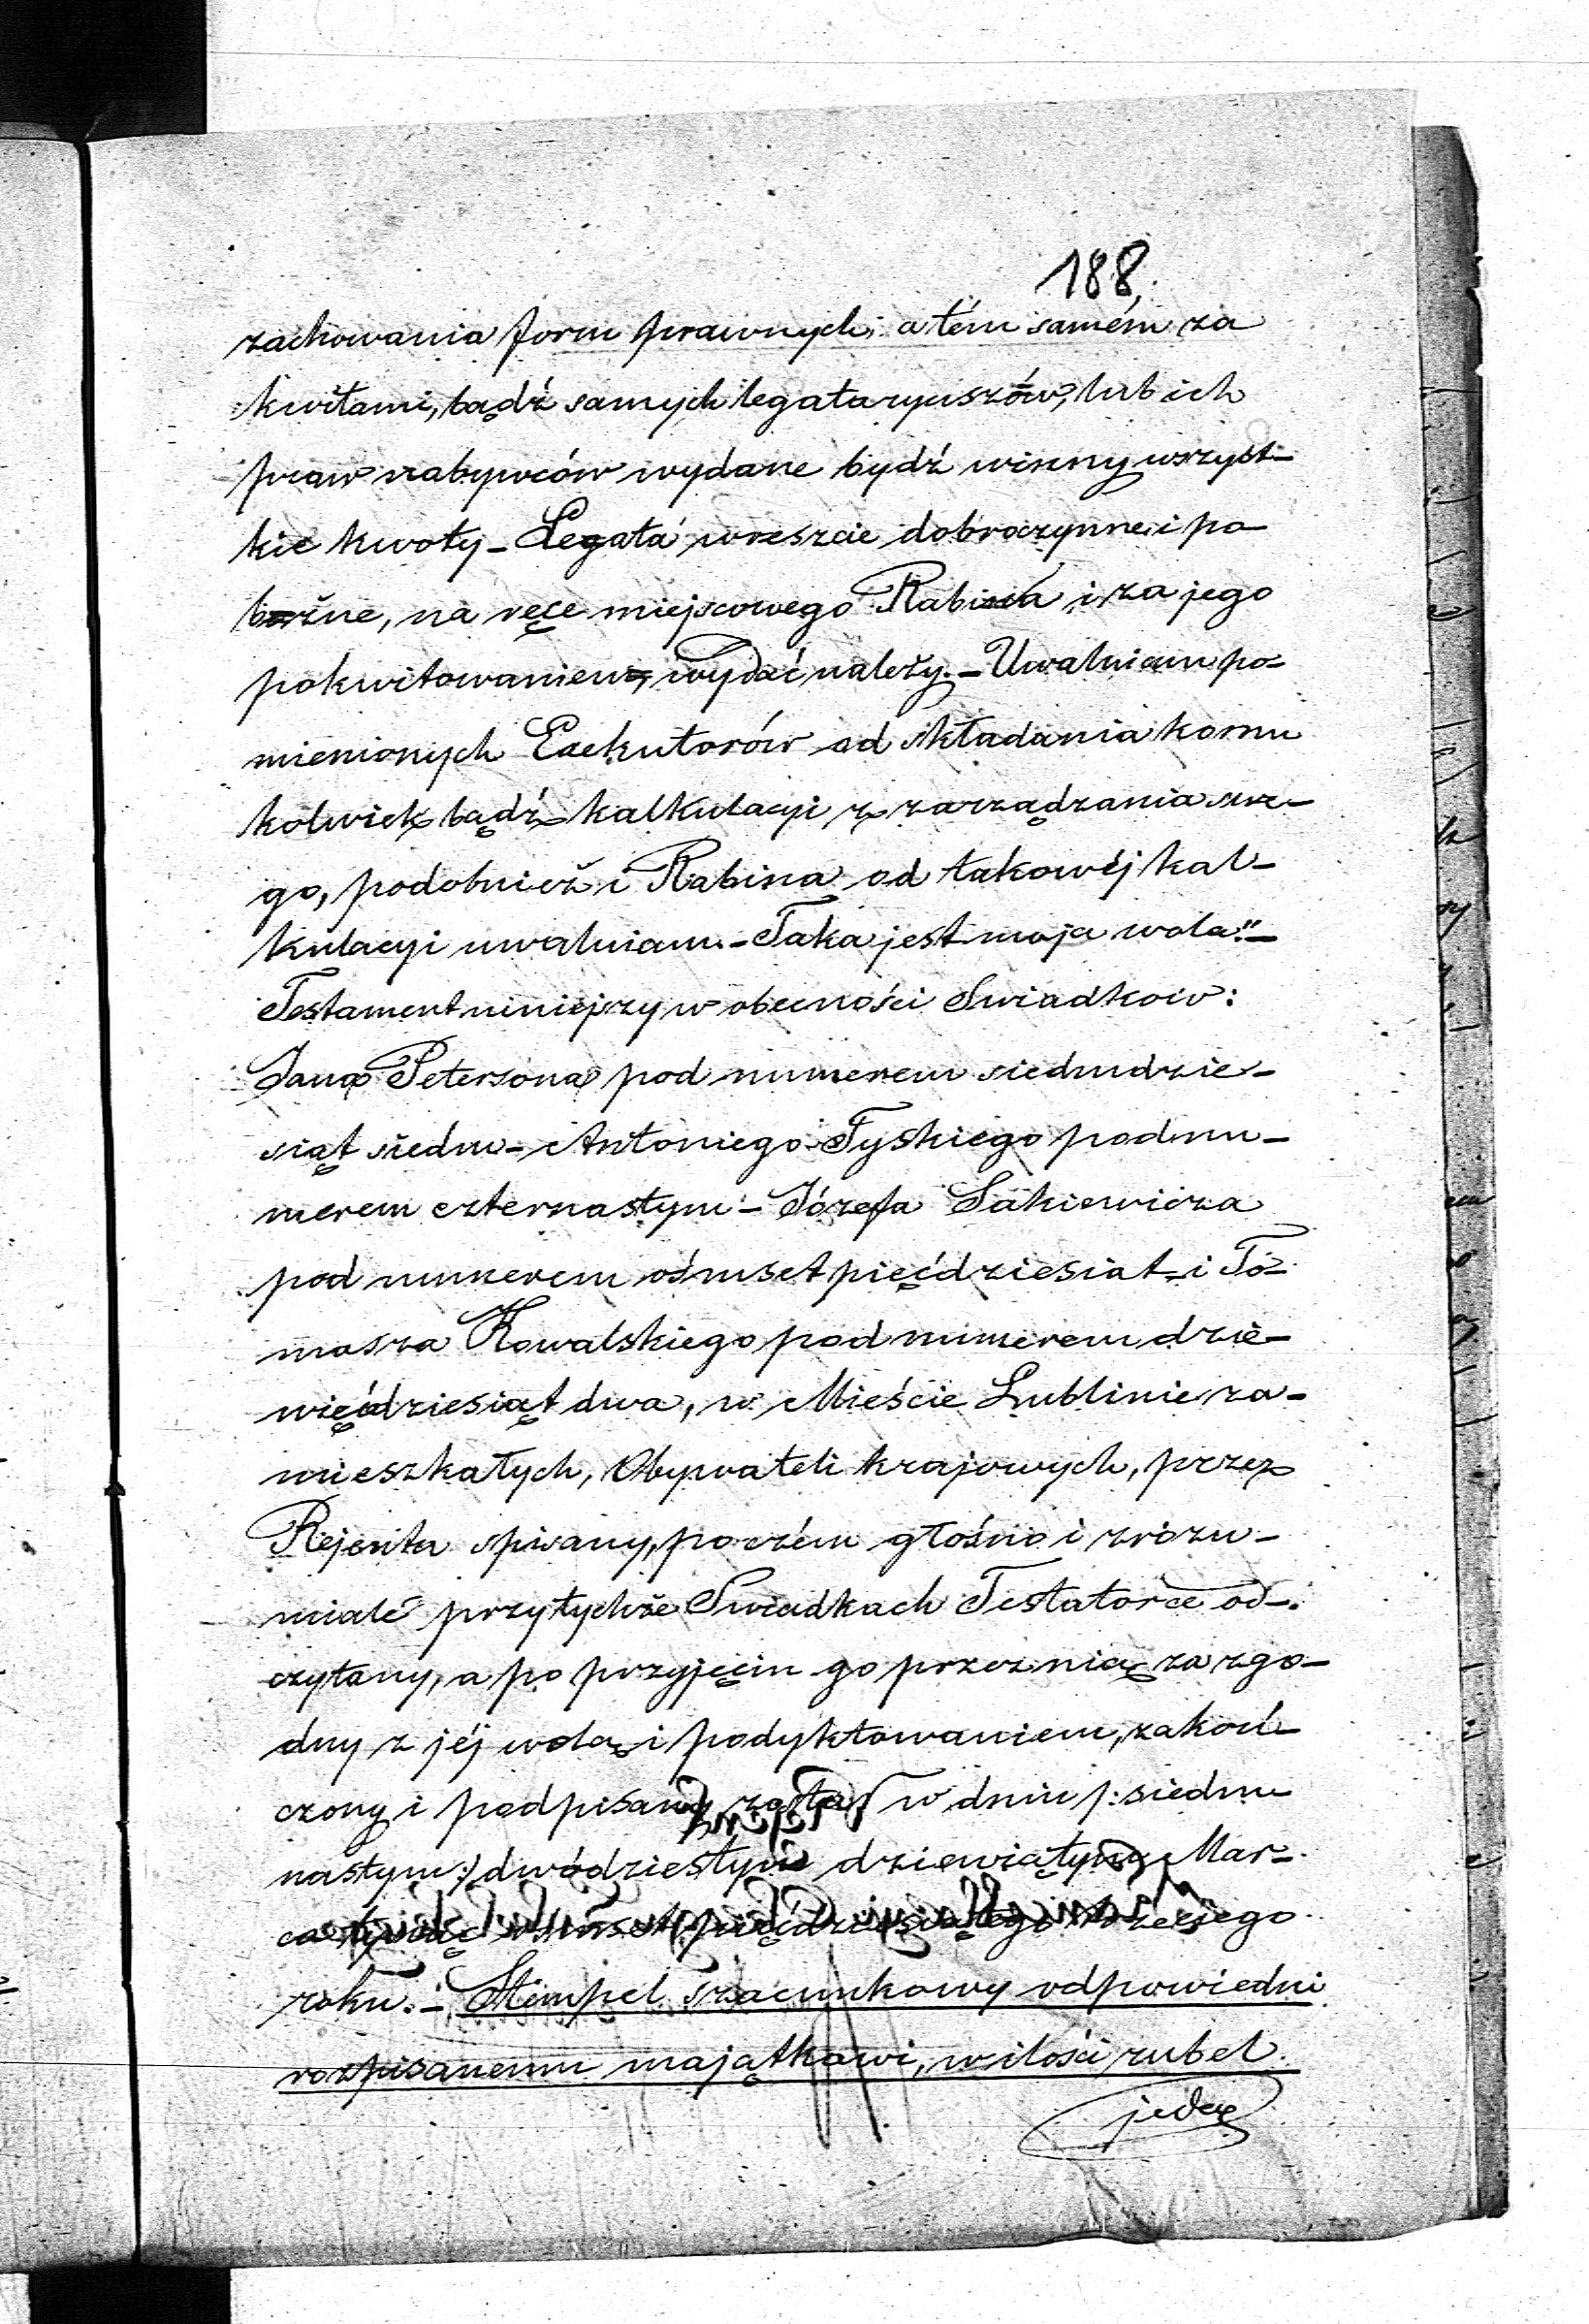 188.
zachowania form prawnych, a tém samém za
kwitami, bądź samych legataryuszów, lub ich
praw nabywców wydane bydź winny wszyst-
kie kwoty - Legata wreszcie dobroczynne i po
bożne, na ręce miejscowego Rabina i za jego
pokwitowaniem, wydać należy. - Uwalniam po-
mienionych Exekutorów od składania komu
kolwiek bądź kalkulacyi z zarządzania swe-
go, podobnież i Rabina od takowéj kal-
kulacyi uwalniam. - Taka jest moja wola." -
Testament niniejszy w obecności Swiadków:
Jana Petersona pod numerem siedmdzie-
siąt siedm - Antoniego Tyskiego pod nu-
merem czternastym - Józefa Sakiewicza
pod numerem ośmset pięćdziesiąt i To-
masza Kowalskiego pod numerem dzie-
więćdziesiąt dwa, w Mieście Lublinie za-
mieszkałych, Obywateli krajowych, przez
Rejenta spisany, poczém głośno i zrozu-
miale przytychże Swiadkach Testatorce od-
czytany, a po przyjęciu go przez nią za zgo-
dny z jéj wolą i podyktowaniem, zakoń-
czony i podpisany został w dniu /: siedm
nastym :/ dwódziestym dziewiątym Mar-
ca tysiąc ośmset pięćdziesiątego trzeciego
roku. - Stempel szacunkowy odpowiedni
rozpisanemu majątkowi, w ilości rubel
jeden